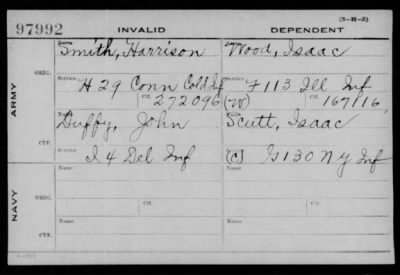 (3-H-3)
97992 INVALID DEPENDENT
ARMY
ORIG.
Name Smith, Harrison Wood, Isaac
Service H 29 Conn Cold Inf Service F 113 Ill Inf
Ctf. 272096 (W) Ctf. 167116
CTF.
Duffy, John Scutt, Isaac
Service I 4 Del Inf (C) G 130 N Y Inf
NAVY
ORIG.
Name Name
Service Ctf. Service Ctf.
CTF.
Name Name